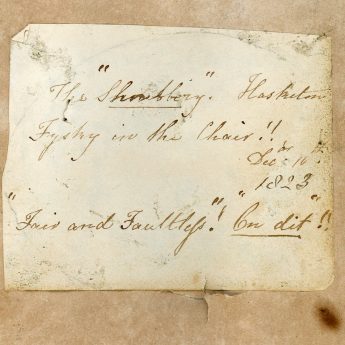 The "Shrubbery". Hasketon
Fyshy in the Chair!!
Decr 16.
1823
"Fair and Faultless"! "On dit"!!